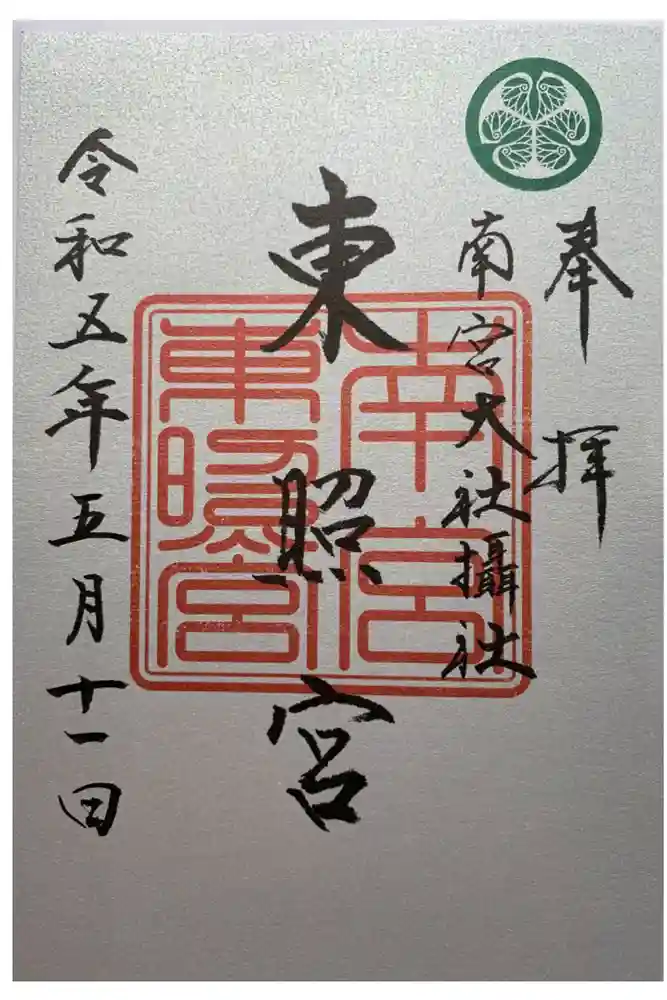 奉拝
南宮大社攝社
東照宮
令和五年五月十一日
南宮
東照宮